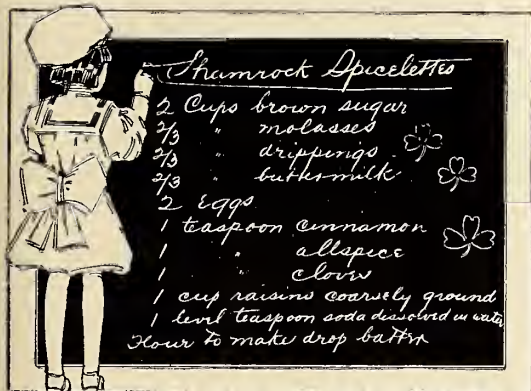 Shamrock Spicelettes
2 Cups brown sugar
2/3 " molasses
2/3 " drippings
2/3 " buttermilk
2 Eggs
1 teaspoon cinnamon
1 " allspice
1 " cloves
1 cup raisins coarsely ground
1 level teaspoon soda dissolved in water
Flour to make drop batter